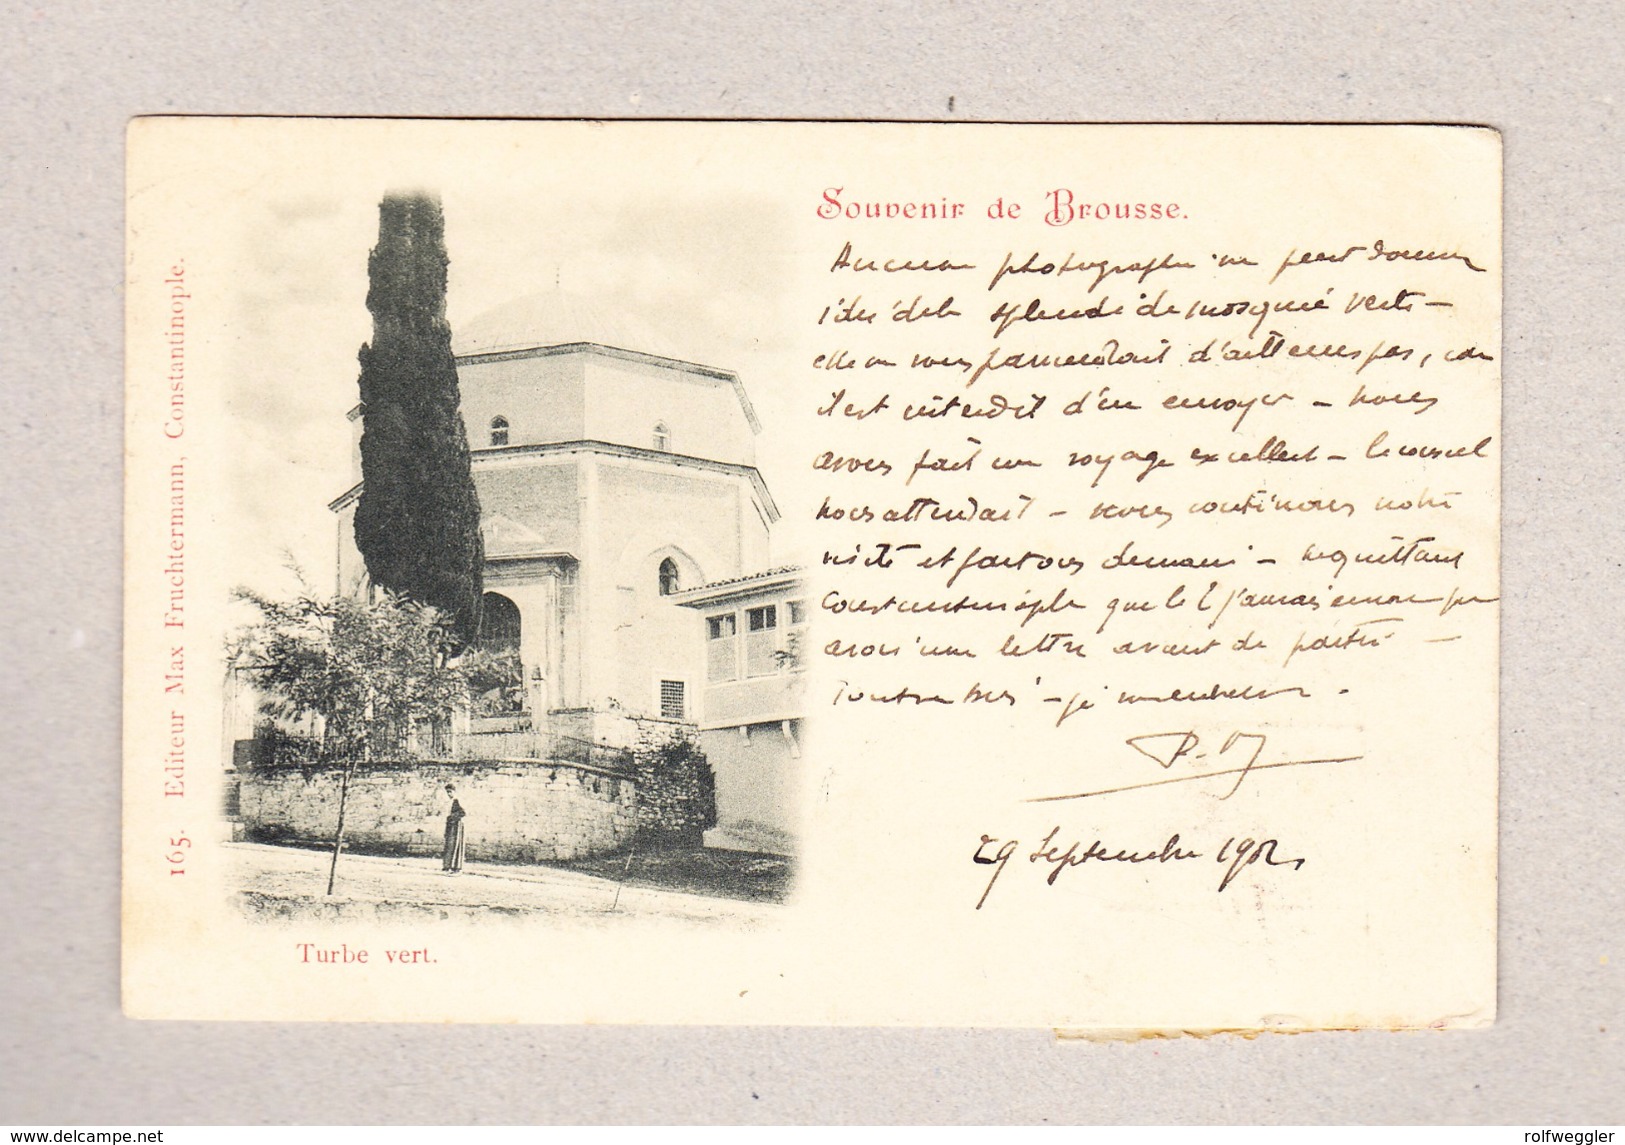 Souvenir de Brousse.
Aucune photographie ne peut donner
l'idée de la splendide mosquée verte -
elle ne vous parviendrait d'ailleurs pas, car
il est interdit d'en envoyer - nous
avons fait un voyage excellent - le consul
nous attendait - nous continuons notre
visite et partons demain - ne quittant
Constantinople que le 2 j'aurais encore
avoir une lettre avant de partir -
Toutes - je
29 Septembre 1902
165. Editeur Max Fruchtermann, Constantinople.
Turbe vert.
delcampe.net
rolfweggler